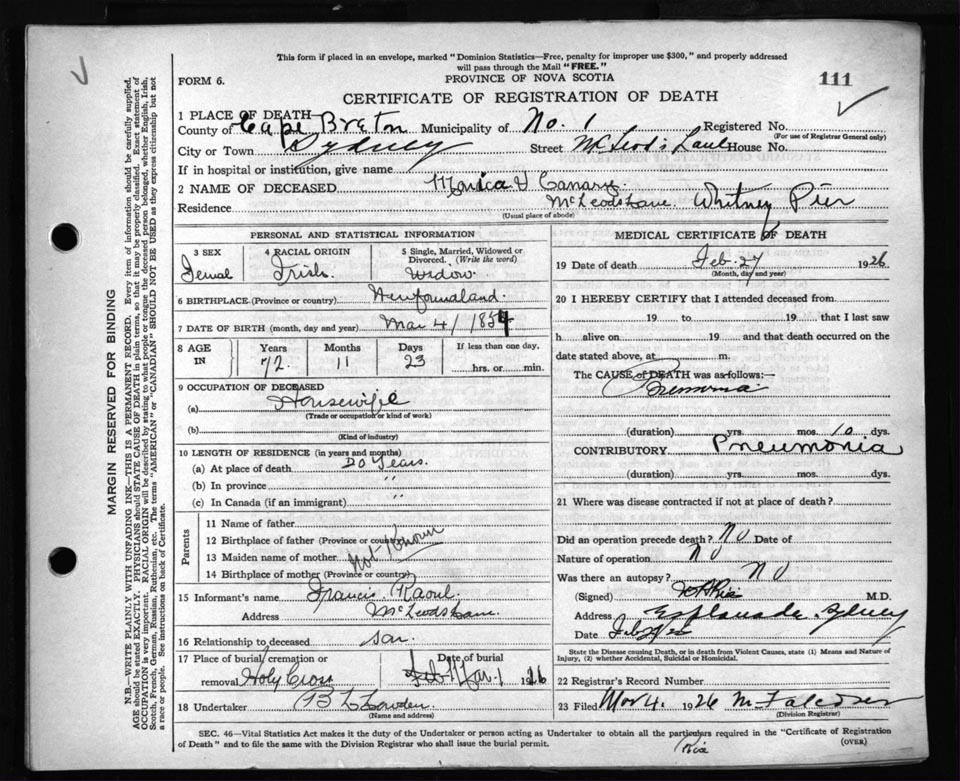 This form if placed in an envelope, marked "Dominion Statistics—Free, penalty for improper use $300," and properly addressed
will pass through the Mail "FREE."
FORM 6.
PROVINCE OF NOVA SCOTIA
111
CERTIFICATE OF REGISTRATION OF DEATH
1 PLACE OF DEATH
County of Cape Breton Municipality of No. 1 Registered No.
(For use of Registrar General only)
City or Town Sydney Street McLeod's Lane House No.
If in hospital or institution, give name
2 NAME OF DECEASED Monica V Canary
Residence McLeods Lane Whitney Pier
(Usual place of abode)
PERSONAL AND STATISTICAL INFORMATION
3 SEX
Femal
4 RACIAL ORIGIN
Irish
5 Single, Married, Widowed or
Divorced. (Write the word)
Widow
6 BIRTHPLACE (Province or country) Newfoundland
7 DATE OF BIRTH (month, day and year) Mar 4/1854
8 AGE
IN
Years Months Days If less than one day,
72 11 23 hrs. or min.
9 OCCUPATION OF DECEASED
(a) Housewife
(Trade or occupation or kind of work)
(b)
(Kind of industry)
10 LENGTH OF RESIDENCE (in years and months)
(a) At place of death Years.
(b) In province "
(c) In Canada (if an immigrant) "
Parents
11 Name of father
12 Birthplace of father (Province or country)
13 Maiden name of mother Not Known
14 Birthplace of mother (Province or country)
15 Informant's name Francis Raoul
Address McLeods Lane
16 Relationship to deceased son
17 Place of burial, cremation or
removal Holy Cross
Date of burial
Mar 1 1926
18 Undertaker Lowden
(Name and address)
MEDICAL CERTIFICATE OF DEATH
19 Date of death Feb. 27 1926
(Month, day and year)
20 I HEREBY CERTIFY that I attended deceased from
19 to 19 that I last saw
h alive on 19 and that death occurred on the
date stated above, at m.
The CAUSE of DEATH was as follows:—
(duration) yrs. mos. 10 dys.
CONTRIBUTORY Pneumonia
(duration) yrs. mos. dys.
21 Where was disease contracted if not at place of death?
Did an operation precede death? No Date of
Nature of operation No
Was there an autopsy? No
(Signed) M.D.
Address Esplanade, Sydney
Date
State the Disease causing Death, or in death from Violent Causes, state (1) Means and Nature of
Injury, (2) whether Accidental, Suicidal or Homicidal.
22 Registrar's Record Number
23 Filed Mar 4. 1926
(Division Registrar)
SEC. 46—Vital Statistics Act makes it the duty of the Undertaker or person acting as Undertaker to obtain all the particulars required in the "Certificate of Registration
of Death" and to file the same with the Division Registrar who shall issue the burial permit.
(OVER)
MARGIN RESERVED FOR BINDING
N.B.—WRITE PLAINLY WITH UNFADING INK—THIS IS A PERMANENT RECORD. Every item of information should be carefully supplied.
AGE should be stated EXACTLY. PHYSICIANS should STATE CAUSE OF DEATH in plain terms, so that it may be properly classified. Exact statement of
OCCUPATION is very important. RACIAL ORIGIN will be described by stating to what people or tongue the deceased person belonged, whether English, Irish,
Scotch, French, German, Russian, Ruthenian, etc. The terms "AMERICAN" or "CANADIAN" SHOULD NOT BE USED as they express citizenship but not
a race or people. See instructions on back of Certificate.